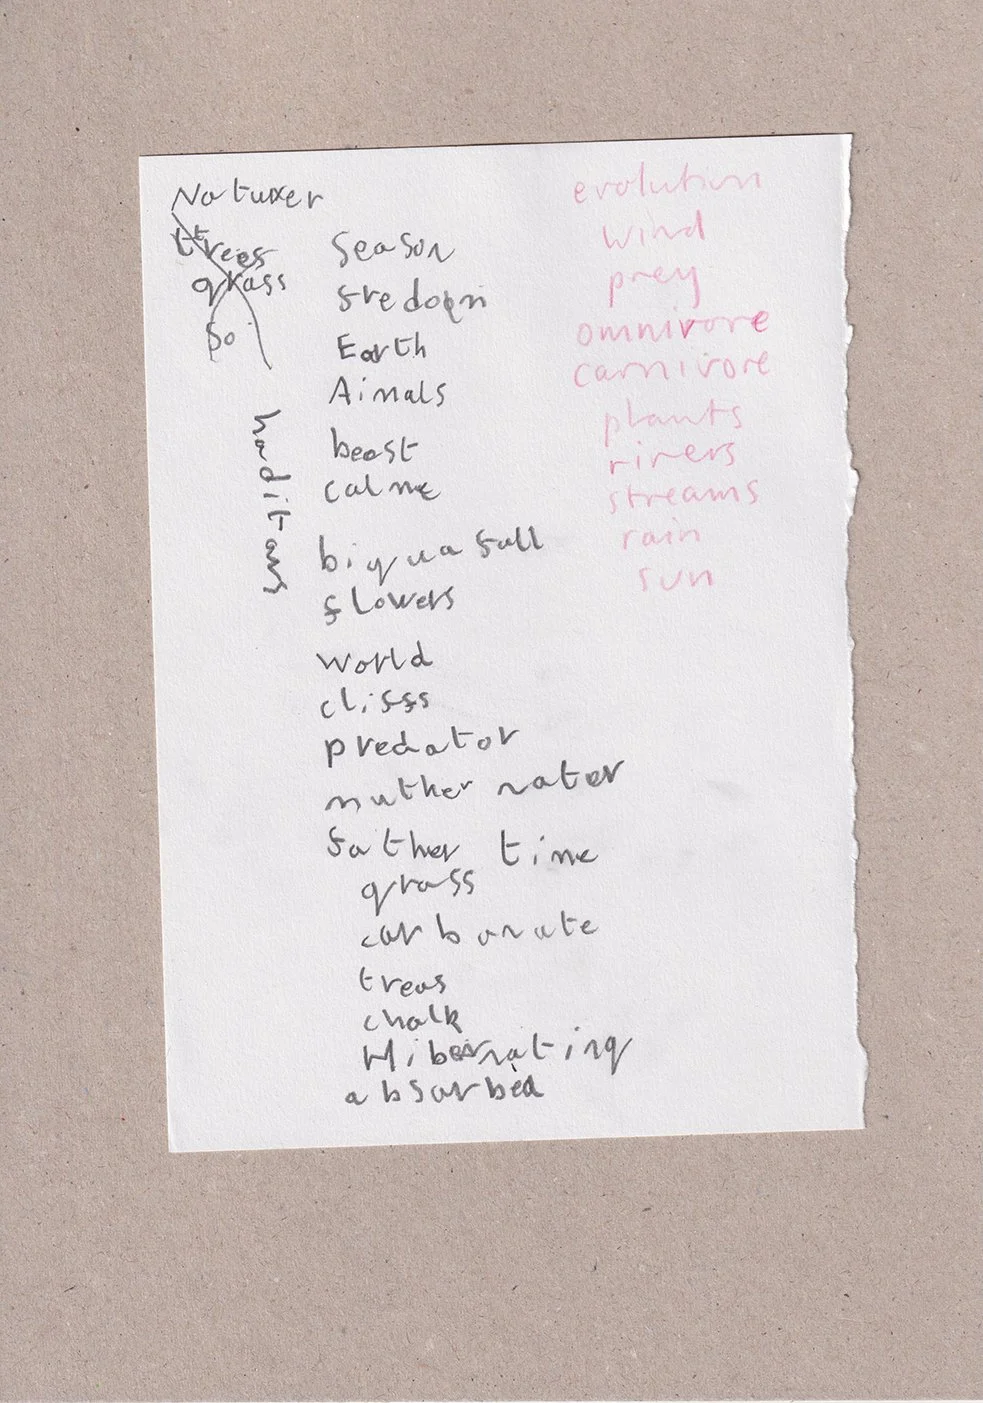 Natuxer
ttrees
grass
So
haditans
Season
fredom
Earth
Aimals
beast
calme
biquafull
flowers
world
cliffs
predator
muther nater
father time
grass
carbonate
treas
chalk
Hibernating
absorbed
evolution
wind
prey
omnivore
carnivore
plants
rivers
streams
rain
sun